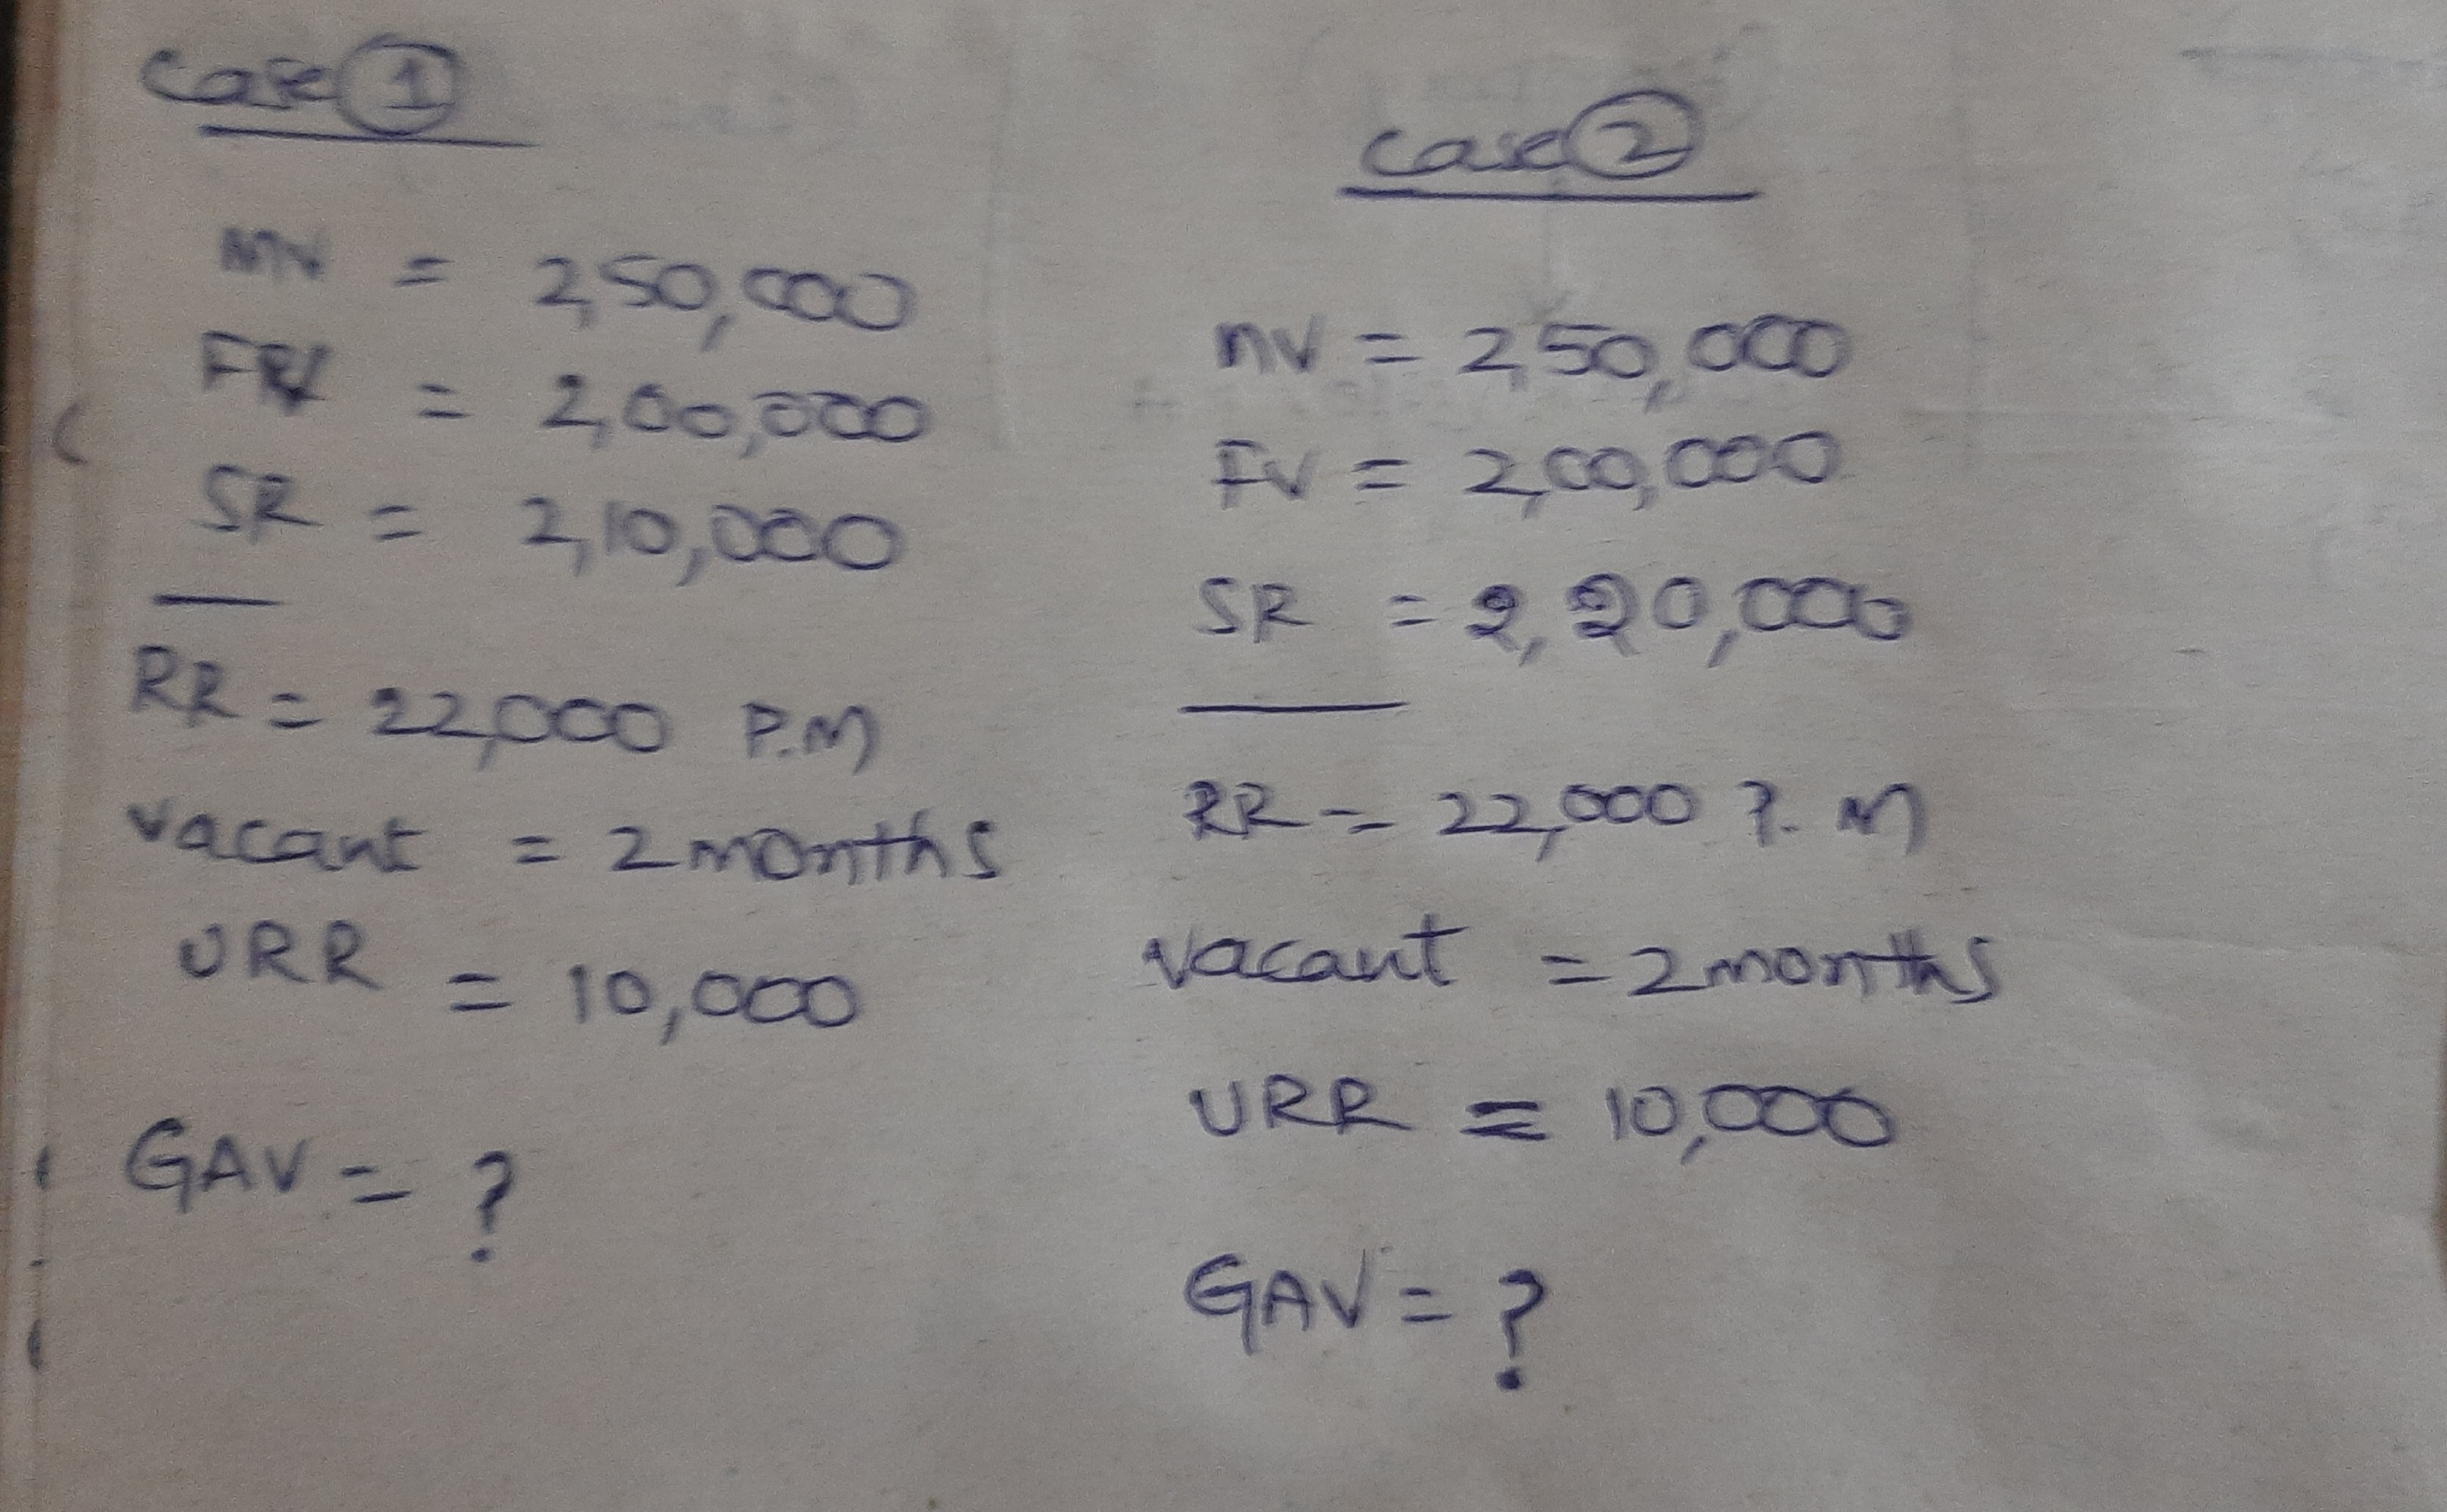 Case 1
MV = 2,50,000
FRV = 2,00,000
SR = 2,10,000
RR = 22,000 P.M
Vacant = 2 months
URR = 10,000
GAV = ?
Case 2
MV = 2,50,000
FV = 2,00,000
SR = 2,20,000
RR = 22,000 P.M
Vacant = 2 months
URR = 10,000
GAV = ?